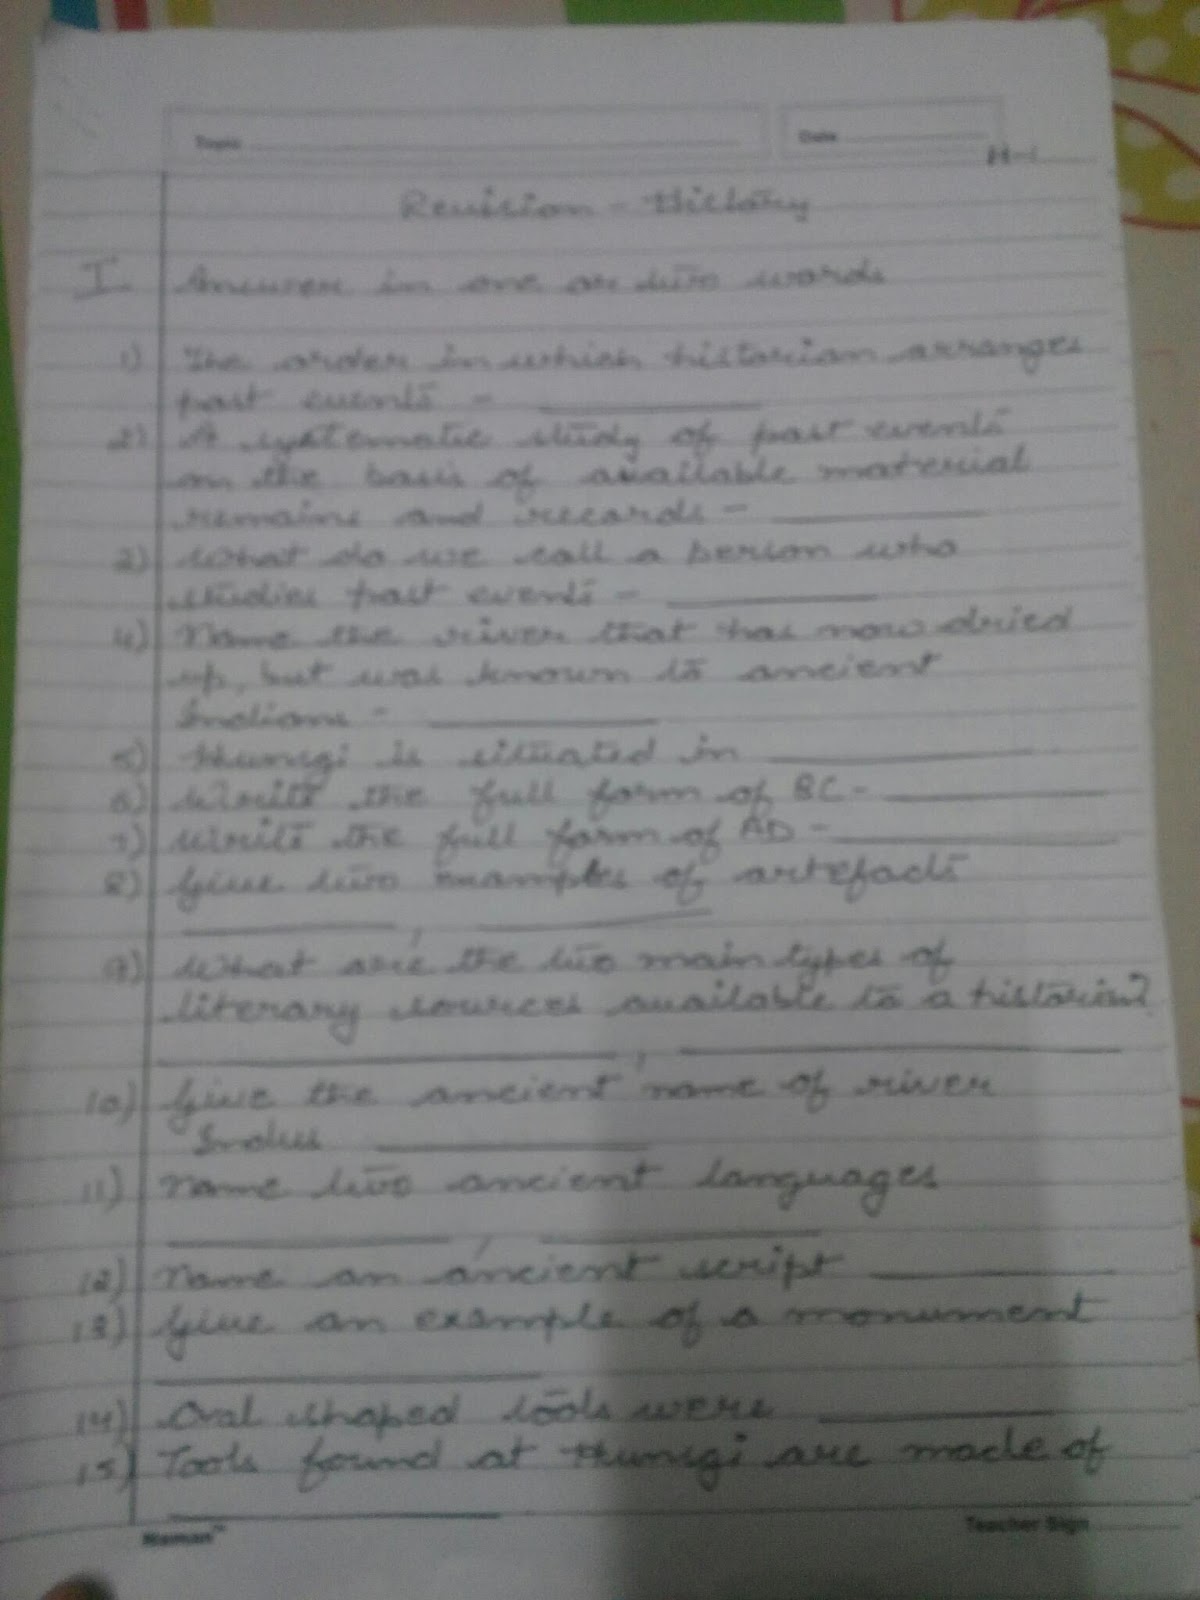 Topic
Date
H-1
Revision - History
I. Answer in one or two words
1) The order in which historian arranges
past events -
2) A systematic study of past events
on the basis of available material
remains and records -
3) What do we call a person who
studies past events -
4) Name the river that has now dried
up, but was known to ancient
Indians -
5) Hunsgi is situated in
6) Write the full form of BC -
7) Write the full form of AD -
8) Give two examples of artefacts
,
9) What are the two main types of
literary sources available to a historian?
,
10) Give the ancient name of river
Indus
11) Name two ancient languages
,
12) Name an ancient script
13) Give an example of a monument
14) Oval shaped tools were
15) Tools found at Hunsgi are made of
Naman™
Teacher Sign